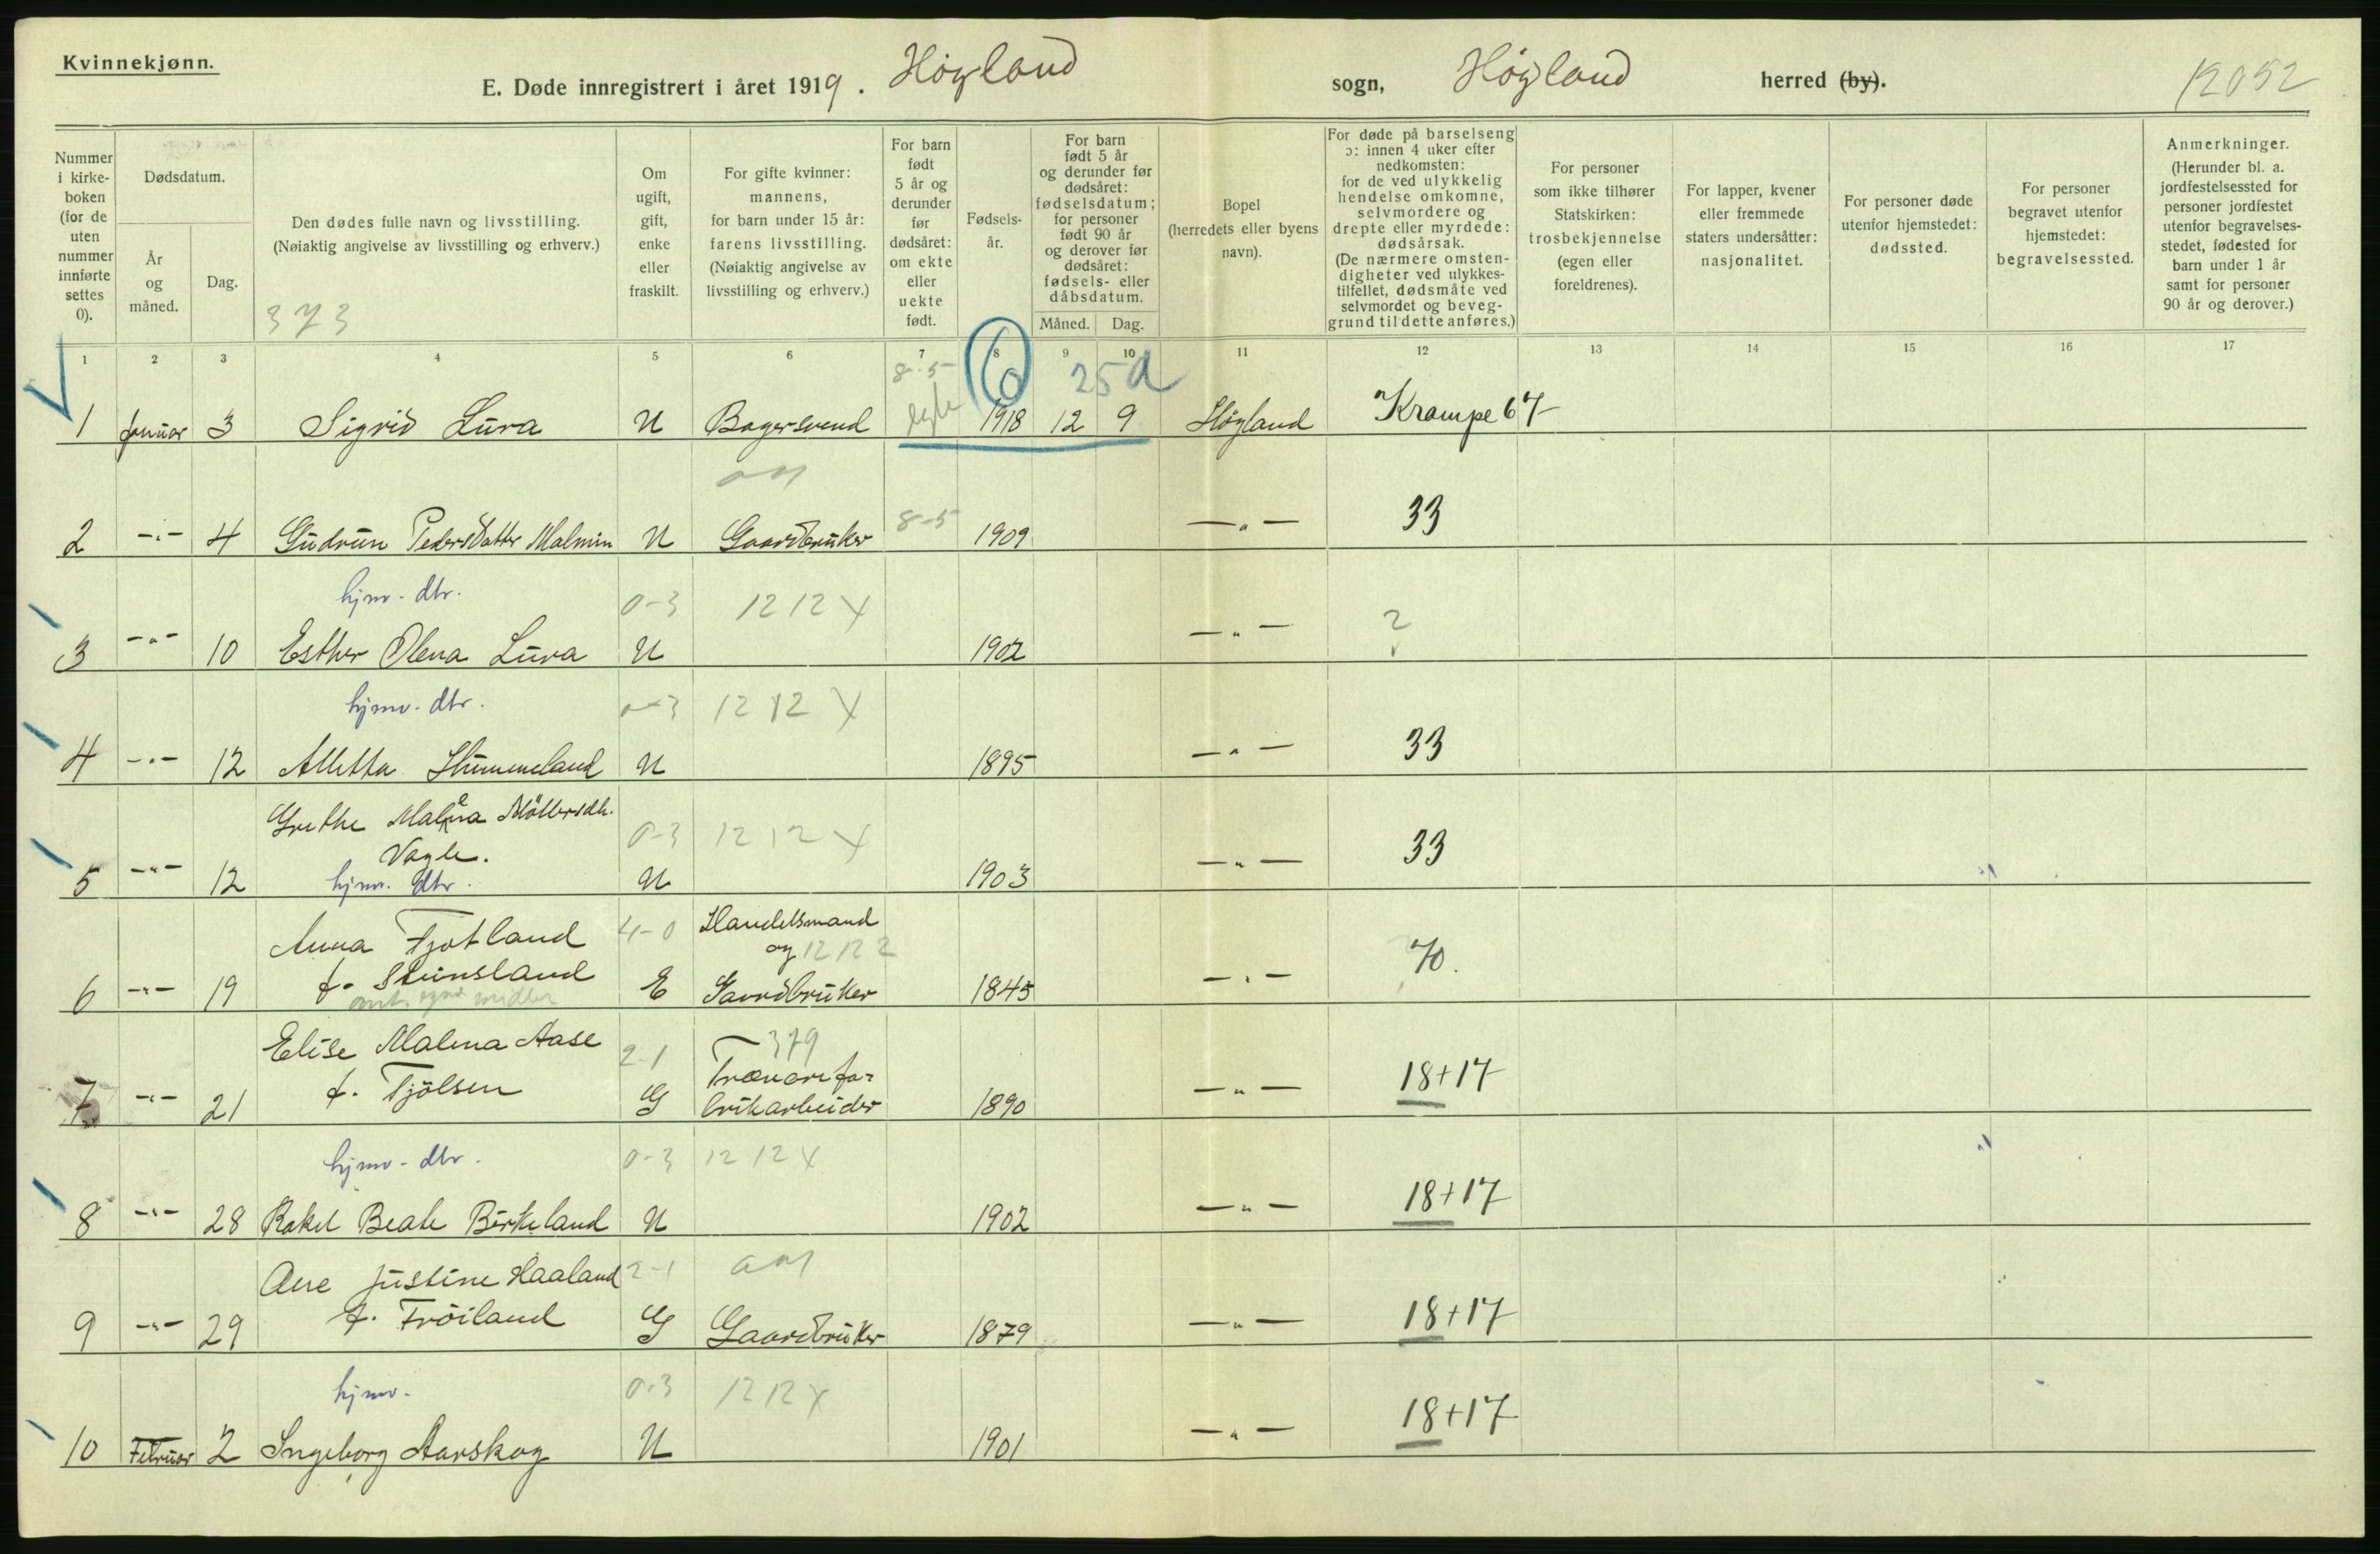 Kvinnekjønn.
E. Døde innregistrert i året 1919. Høyland sogn, Høyland herred (by). 12052
Nummer i kirkeboken (for de uten nummer innførte settes 0).
Dødsdatum.
År og måned.
Dag.
Den dødes fulle navn og livsstilling.
(Nøiaktig angivelse av livsstilling og erhverv.)
373
Om ugift, gift, enke eller fraskilt.
For gifte kvinner: mannens, for barn under 15 år: farens livsstilling. (Nøiaktig angivelse av livsstilling og erhverv.)
For barn født 5 år og derunder før dødsåret: om ekte eller uekte født.
Fødselsår.
For barn født 5 år og derunder før dødsåret: fødselsdatum; for personer født 90 år og derover før dødsåret: fødsels- eller dåbsdatum.
Måned. Dag.
Bopel (herredets eller byens navn).
For døde på barselseng ɔ: innen 4 uker efter nedkomsten: for de ved ulykkelig hendelse omkomne, selvmordere og drepte eller myrdede: dødsårsak. (De nærmere omstendigheter ved ulykkestilfellet, dødsmåte ved selvmordet og beveggrund til dette anføres.)
For personer som ikke tilhører Statskirken: trosbekjennelse (egen eller foreldrenes).
For lapper, kvener eller fremmede staters undersåtter: nasjonalitet.
For personer døde utenfor hjemstedet: dødssted.
For personer begravet utenfor hjemstedet: begravelsessted.
Anmerkninger. (Herunder bl. a. jordfestelsessted for personer jordfestet utenfor begravelsesstedet, fødested for barn under 1 år samt for personer 90 år og derover.)
1 2 3 4 5 6 7 8 9 10 11 12 13 14 15 16 17
8-5 6 25 d
1 Januar 3 Sigrid Lura U Bagersvend egte 1918 12 9 Høyland Krampe 67
2 -"- 4 Gudrun Pedersdatter Malmin U Gaardbruker 8-5 1909 -"- 33
hjmv. dtr. 0-3 12 12 X
3 -"- 10 Esther Olena Lura U 1902 -"- ?
hjmv. dtr. 0-3 12 12 X
4 -"- 12 Alletta Hummeland U 1895 -"- 33
Grethe Malena Möllersdtr. 0-3 12 12 X
Vagle.
5 -"- 12 hjmv. dtr. U 1903 -"- 33
Anna Fjotland 4-0 Handelsmand
og 12 12 2
6 -"- 19 f. Stunsland E Gaardbruker 1845 -"- 70.
ant. egne midler
Elise Malena Aase 2-1 379
f. Tjölsen Trævarefa-
7 -"- 21 G brikarbeider 1890 -"- 18+17
hjmv. dtr. 0-3 12 12 X
8 -"- 28 Rakel Beate Birkeland U 1902 -"- 18+17
Ane Justine Haaland 2-1
9 -"- 29 f. Fröiland G Gaardbruker 1879 -"- 18+17
hjmv. 0-3 12 12 X
10 Februar 2 Ingeborg Aarskog U 1901 -"- 18+17